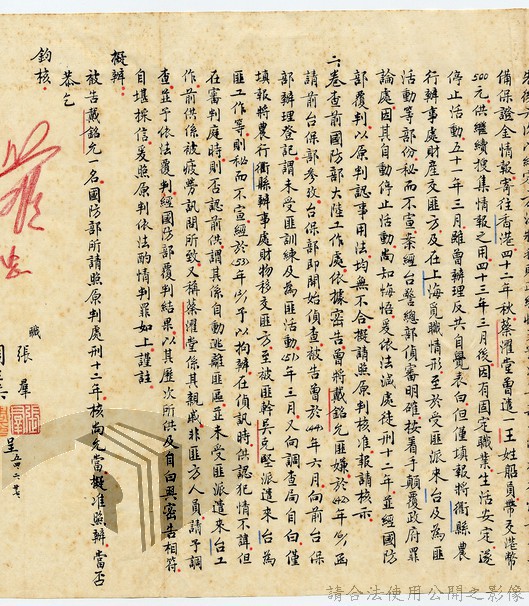 備保證金情報寄往香港四十二年秋蔡濯堂曾遣一王姓船員帶交港幣
500元供繼續搜集情報之用四十三年三月後因有固定職業生活安定遂
停止活動五十一年三月雖曾辦理反共自覺表白但僅填報將衢縣農
行辦事處財產交匪方及在上海覓職情形至於受匪派來台及為匪
活動等部份秘而不宣案經台警總部偵審明確按着手顛覆政府罪
論處因其自動停止活動尚知悔悟爰依法減處徒刑十二年並經國防
部覆判以原判認事用法均無不合擬請照原判核准報請核示
二、卷查前國防部大陸工作處依據密告曾將戴銘允匪嫌於
請前台保部參攷台保部即開始偵查被告曾於 六月向前台保
部辦理登記謂未受匪訓練及為匪活動 三月又向調查局自白僅
填報將農行衢縣辦事處財物移交匪方至被匪幹吳克堅派遣來台為
匪工作等則秘而不宣經於 予以拘辦在偵訊時供認犯情不諱但
在審判庭時則否認前供謂其係自動逃離匪區並未受匪派遣來台工
作前供係被疲勞訊問所致又稱蔡濯堂係其親戚非匪方人員請予調
查並予依法覆判經國防部覆判結果以其歷次所供及自白與密告相符
自堪採信爰照原判依法酌情判罪如上謹註
擬辦:
被告戴銘允一名國防部所請照原判處刑十二年核尚允當擬准照辦當否
恭乞
鈞核
職
張羣
呈
請合法使用公開之影像